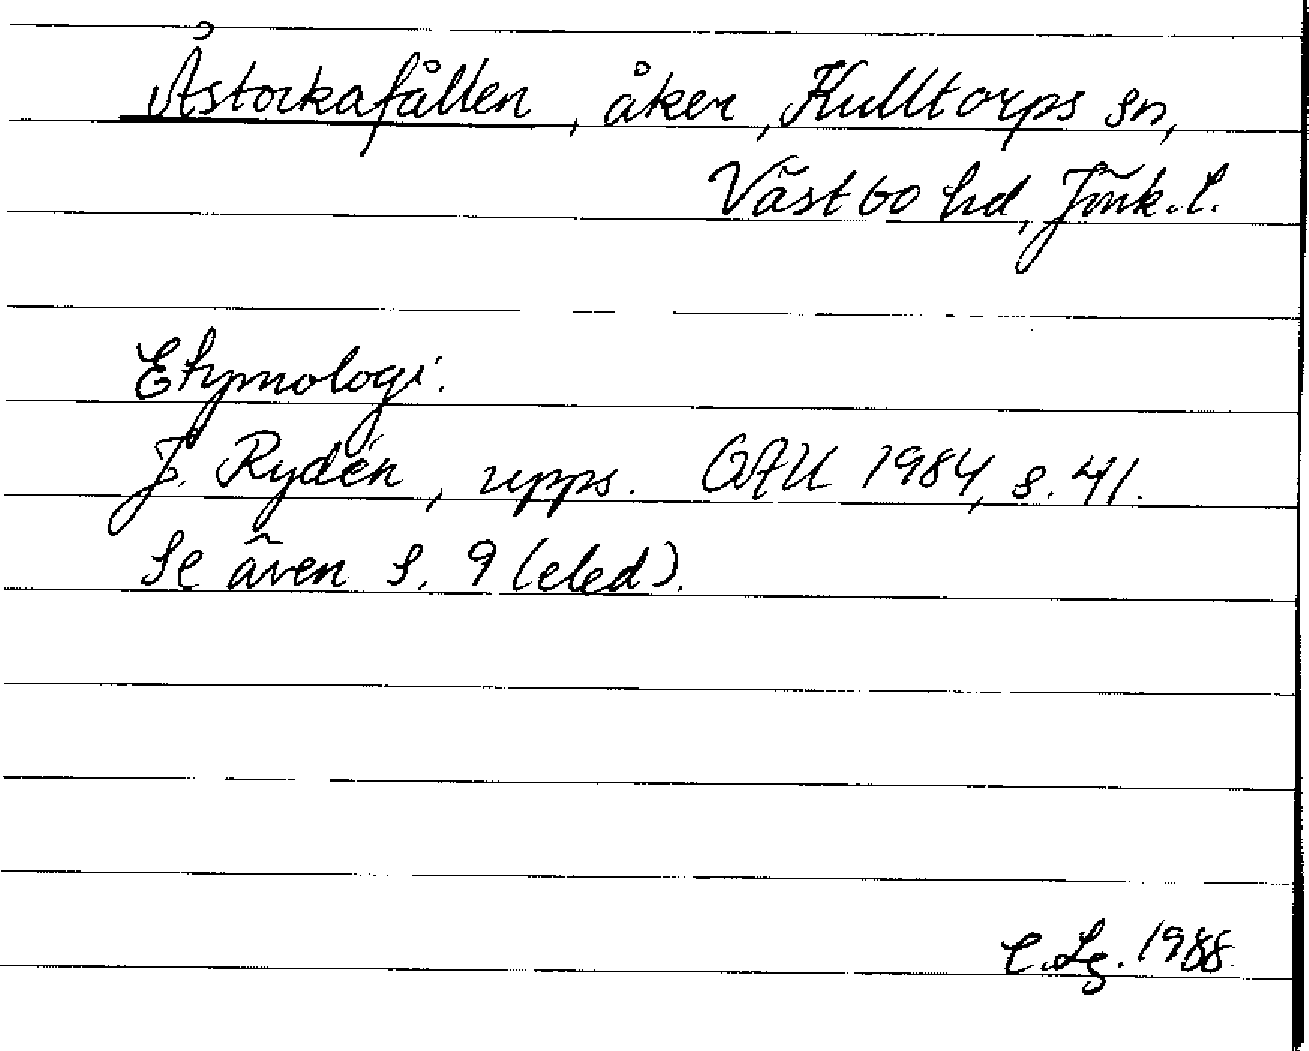 Åstorkafållen, åker, Kulltorps sn,
Västbo hd, Jönk. l.
Etymologi.
J. Rydén, upps. OAU 1984, s. 41.
Se även s. 9 (eled).
C. Lg. 1988